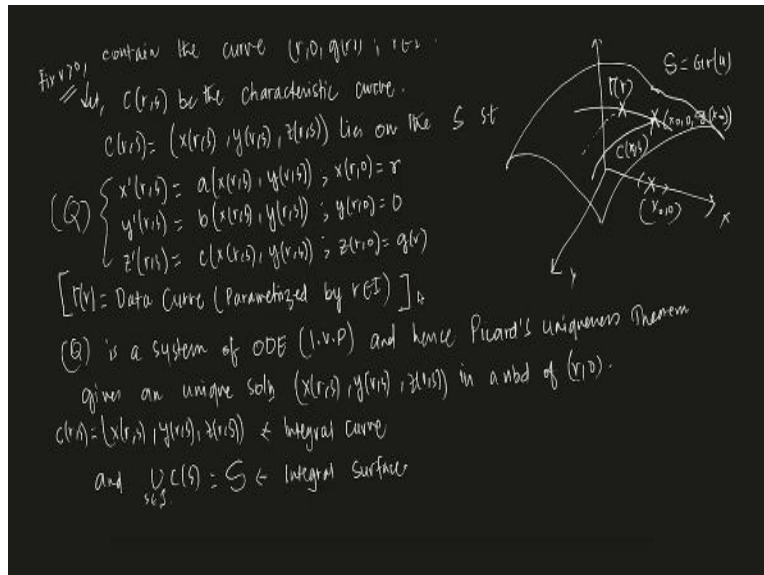 contain the curve (r,0,g(r)); r∈I.
Fix r>0, let, C(r,s) be the characteristic curve.
C(r,s) = (x(r,s), y(r,s), z(r,s)) lies on the S st
(Q) { x'(r,s) = a(x(r,s), y(r,s)); x(r,0) = r
y'(r,s) = b(x(r,s), y(r,s)); y(r,0) = 0
z'(r,s) = c(x(r,s), y(r,s)); z(r,0) = g(r)
[Γ(r) = Data Curve (Parametrized by r∈I)]
(Q) is a system of ODE (I.V.P) and hence Picard's Uniqueness Theorem
gives an unique soln (x(r,s), y(r,s), z(r,s)) in a nbd of (r,0).
C(r,s) = (x(r,s), y(r,s), z(r,s)) ← Integral Curve
and ∪ C(s) = S ← Integral Surface
S = Gr(u)
Γ(r)
C(r,s)
(r₀,0)
x
y